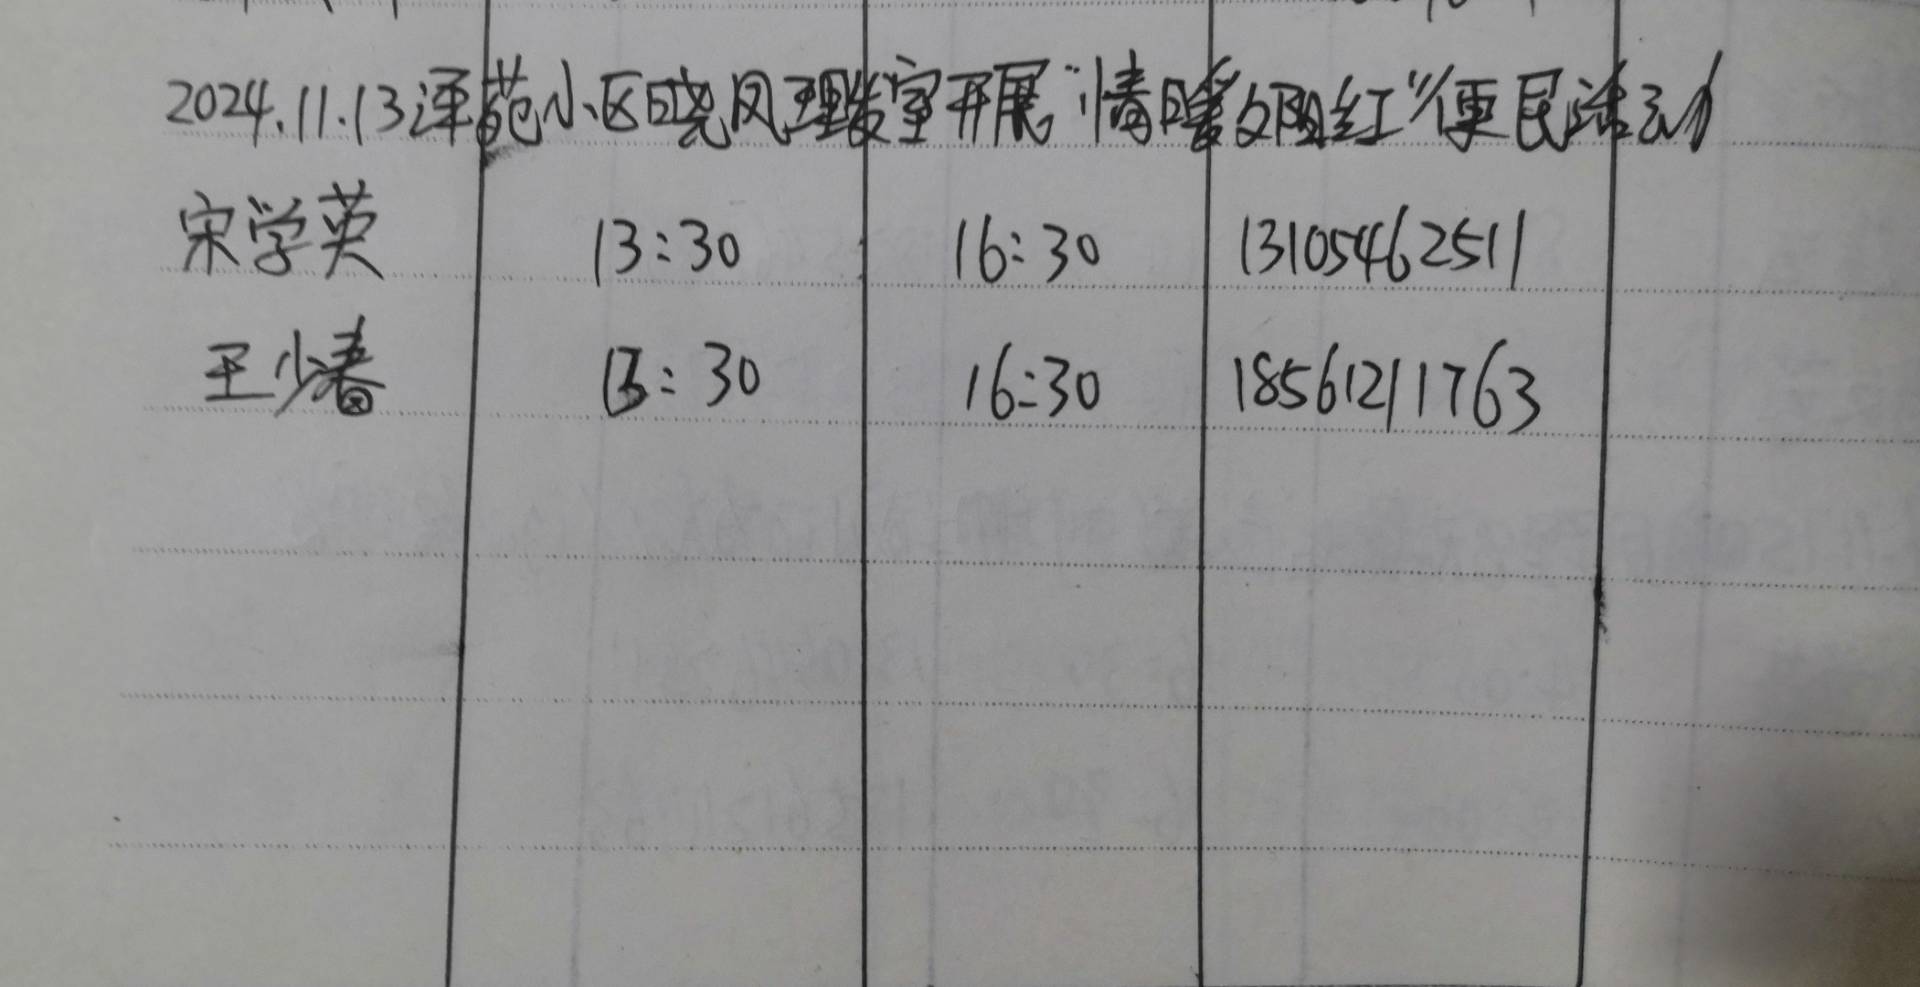 2024.11.13泽苑小区晓风理发室开展“情暖夕阳红”便民活动
宋学英 13:30 16:30 13105462511
王少春 13:30 16:30 18561211763